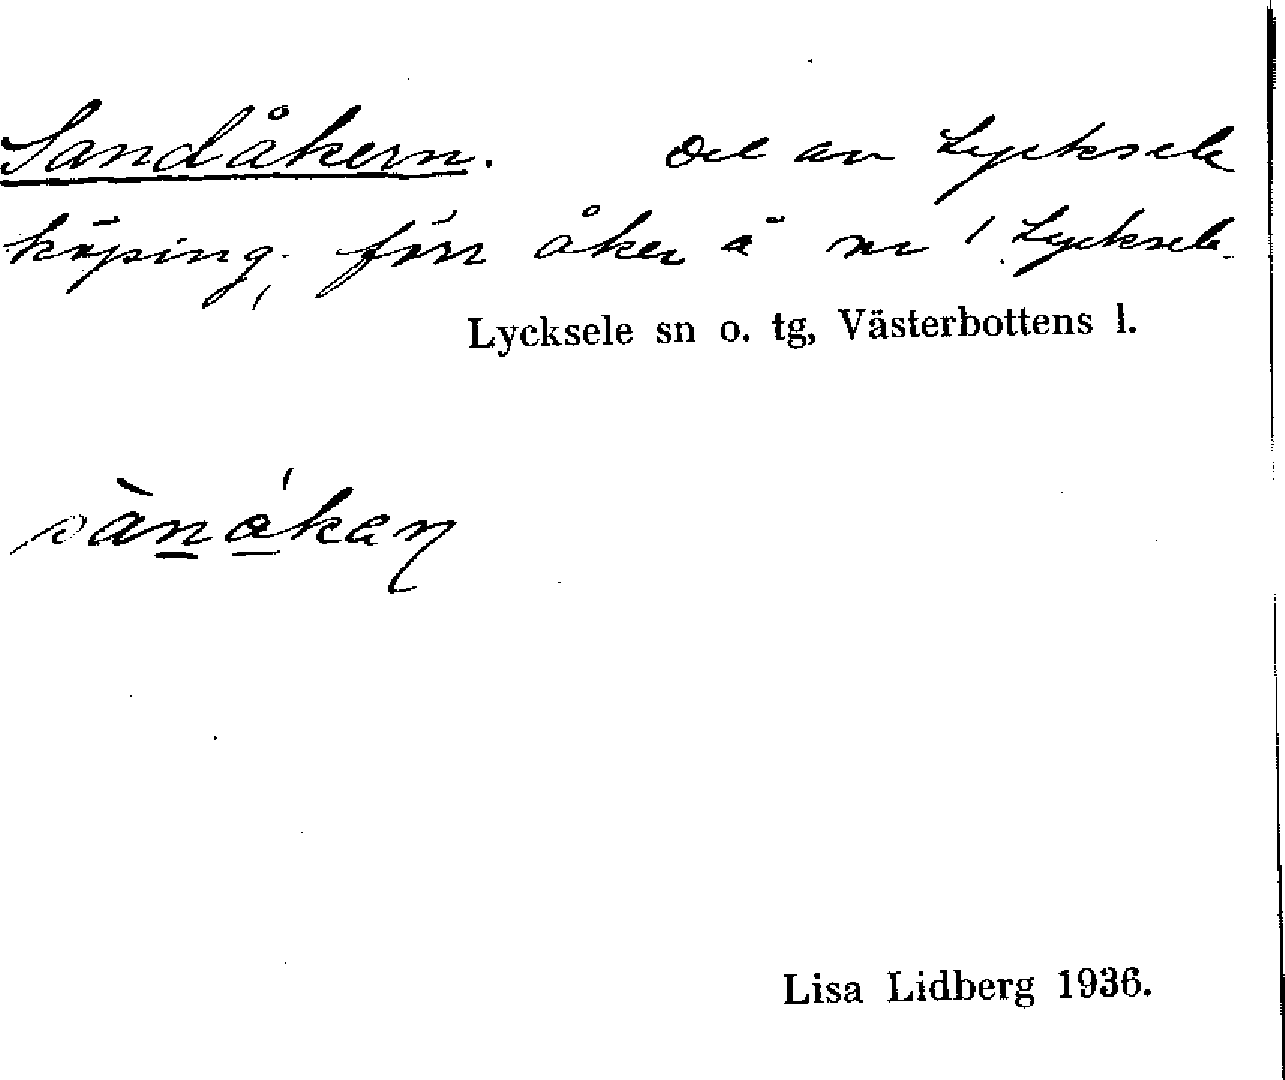 Sandåkern. Del av Lycksele
köping, förr åker å nr 1 Lycksele
Lycksele sn o. tg, Västerbottens l.
sànåkaɳ
Lisa Lidberg 1936.